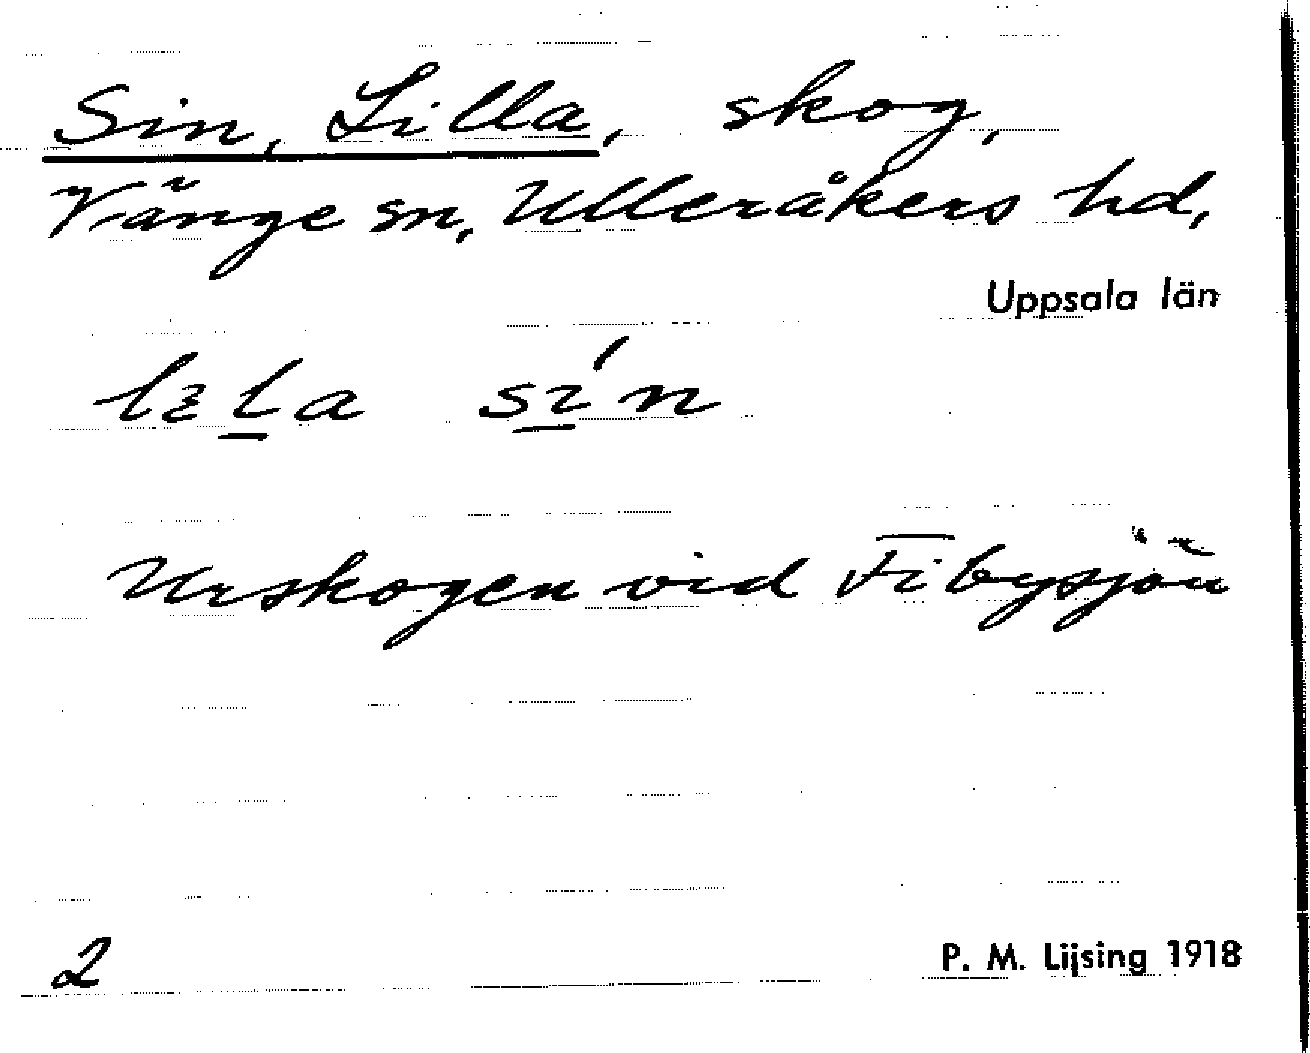 Sin, Lilla, skog,
Vänge sn, Ulleråkers hd,
Uppsala län
lɛla sín
Urskogen vid Fibysjön
2
P. M. Lijsing 1918